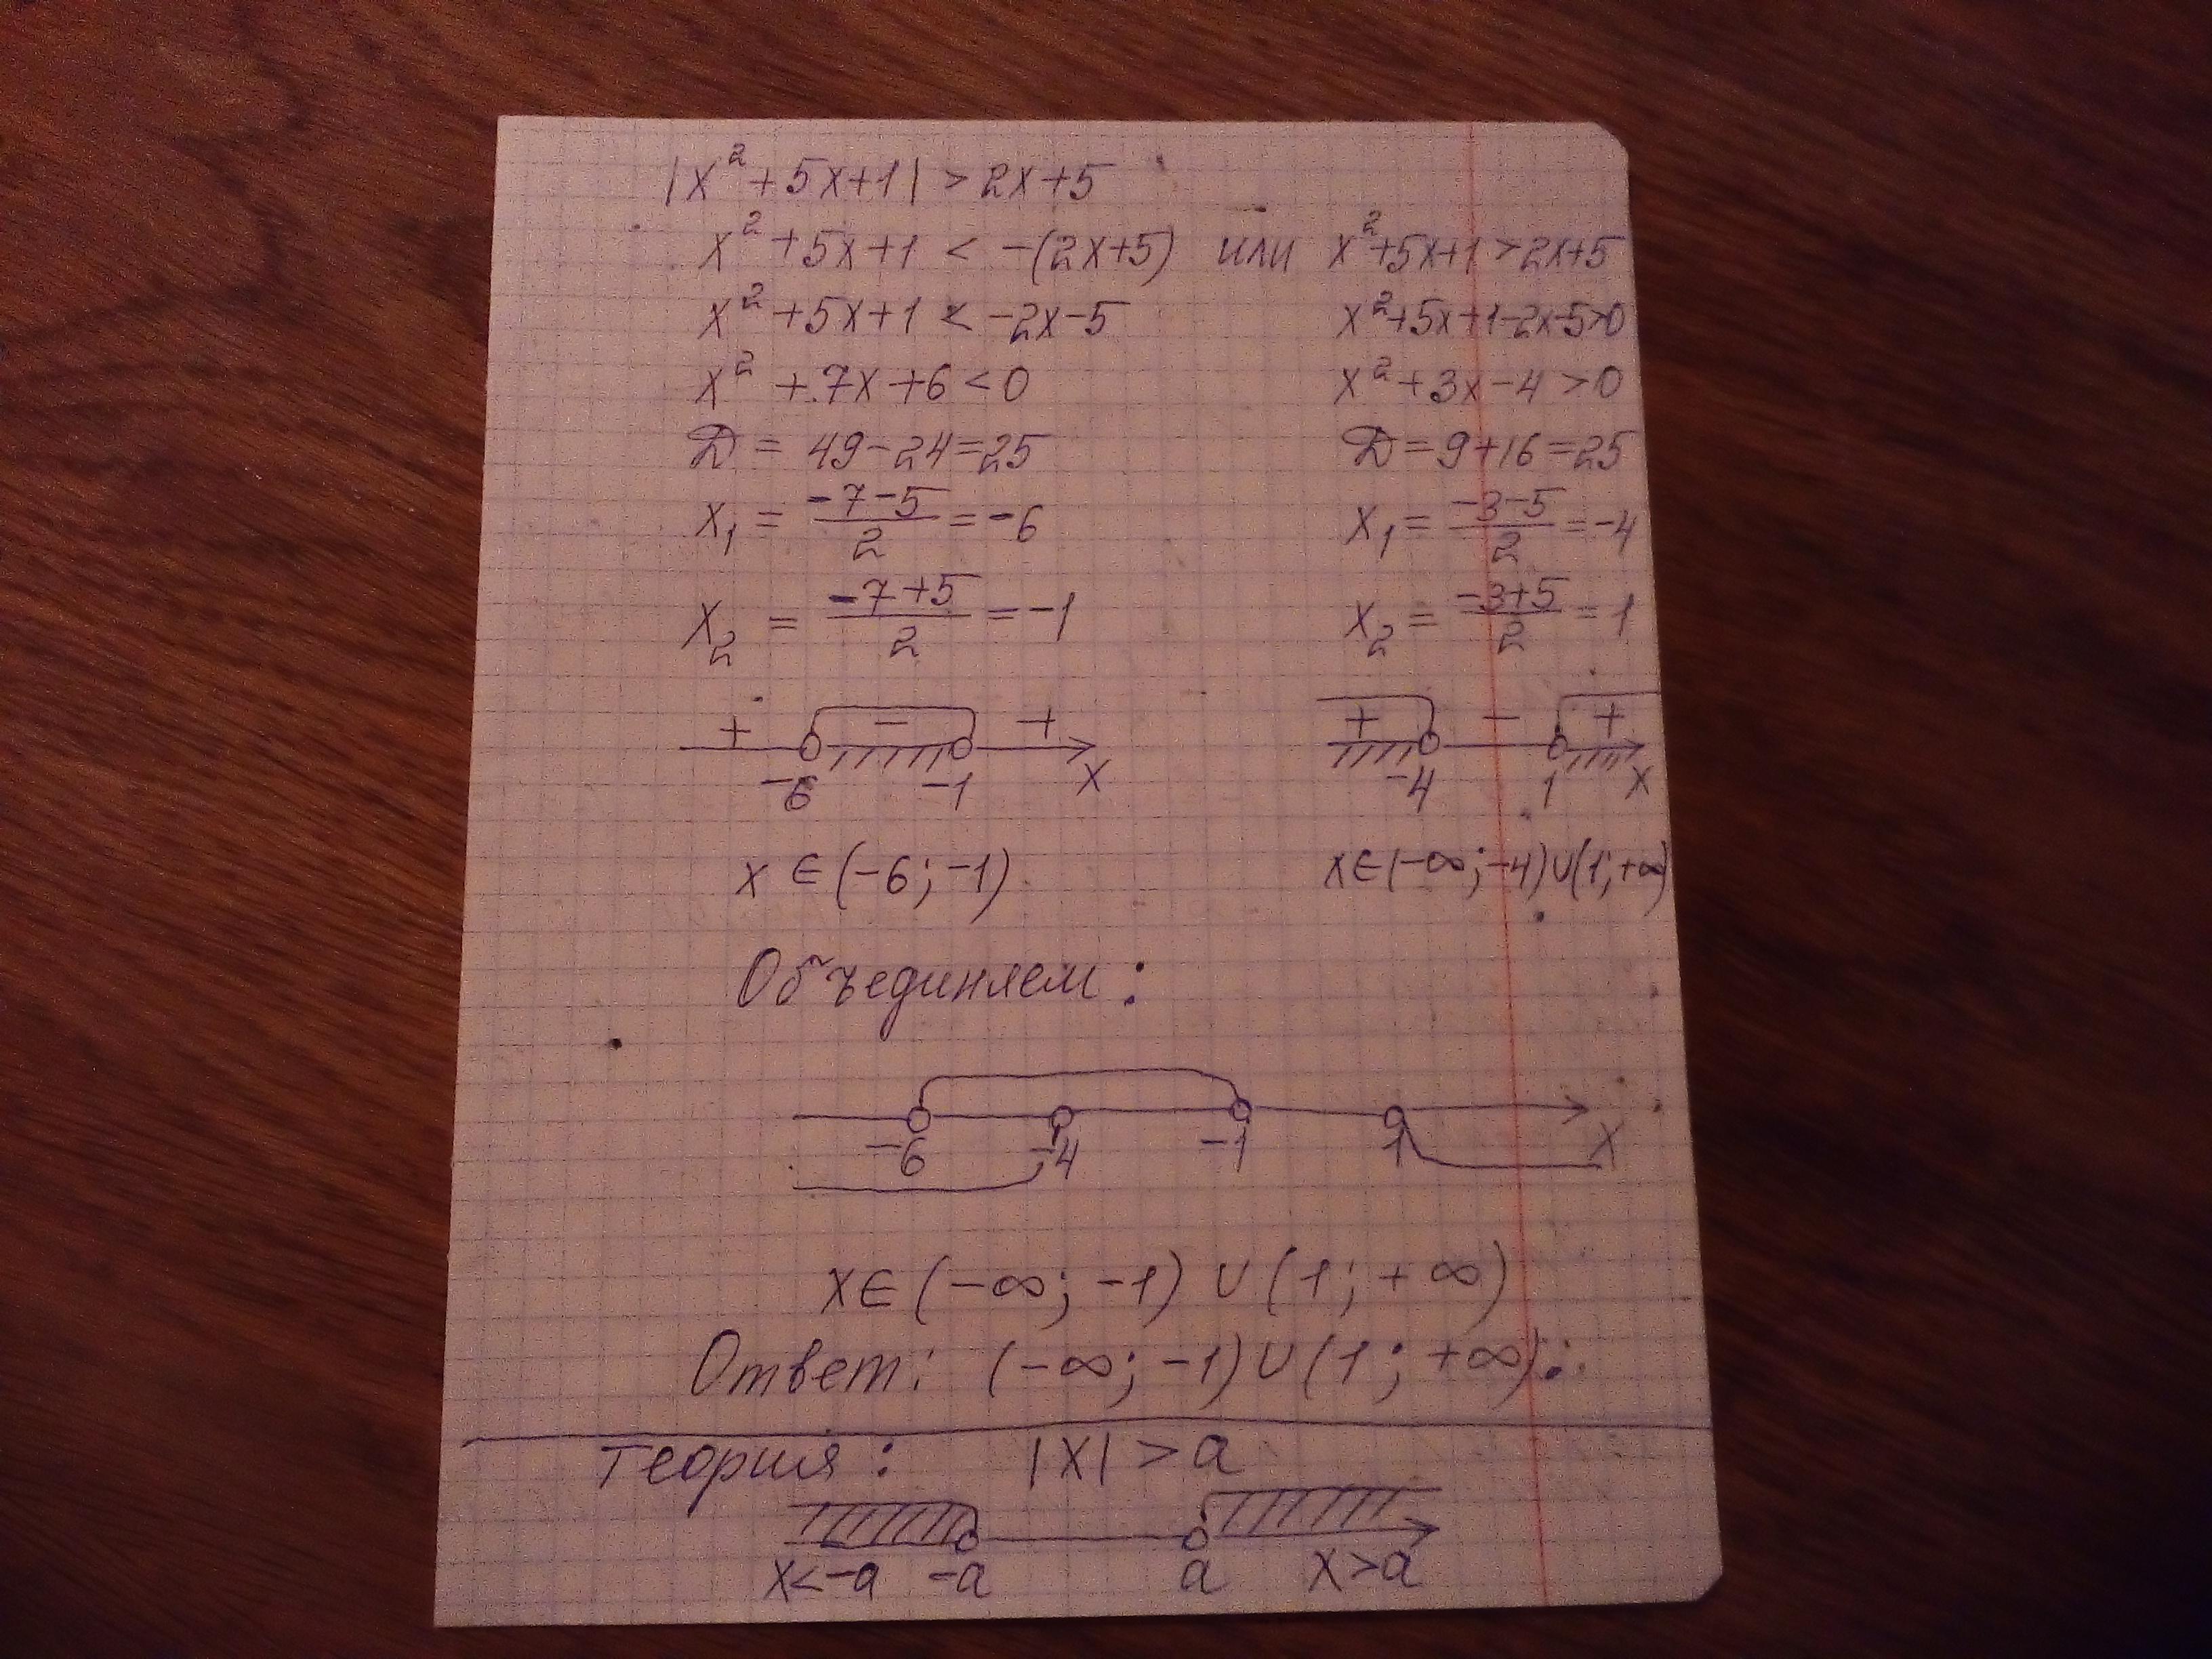 |x² + 5x+1| > 2x+5
x² + 5x+1 < -(2x+5) или x²+5x+1 > 2x+5
x² + 5x+1 < -2x-5 x²+5x+1-2x-5>0
x² + 7x+6 < 0 x²+3x-4 > 0
D = 49-24=25 D=9+16=25
x₁ = (-7-5)/2 = -6 x₁ = (-3-5)/2 = -4
x₂ = (-7+5)/2 = -1 x₂ = (-3+5)/2 = 1
+ - + + - +
-6 -1 x -4 1 x
x ∈ (-6; -1) x∈(-∞; -4)∪(1; +∞)
Объединяем:
-6 -4 -1 1 x
x∈(-∞; -1) ∪ (1; +∞)
Ответ: (-∞; -1)∪(1; +∞).
теория: |x| > a
x<-a -a a x>a